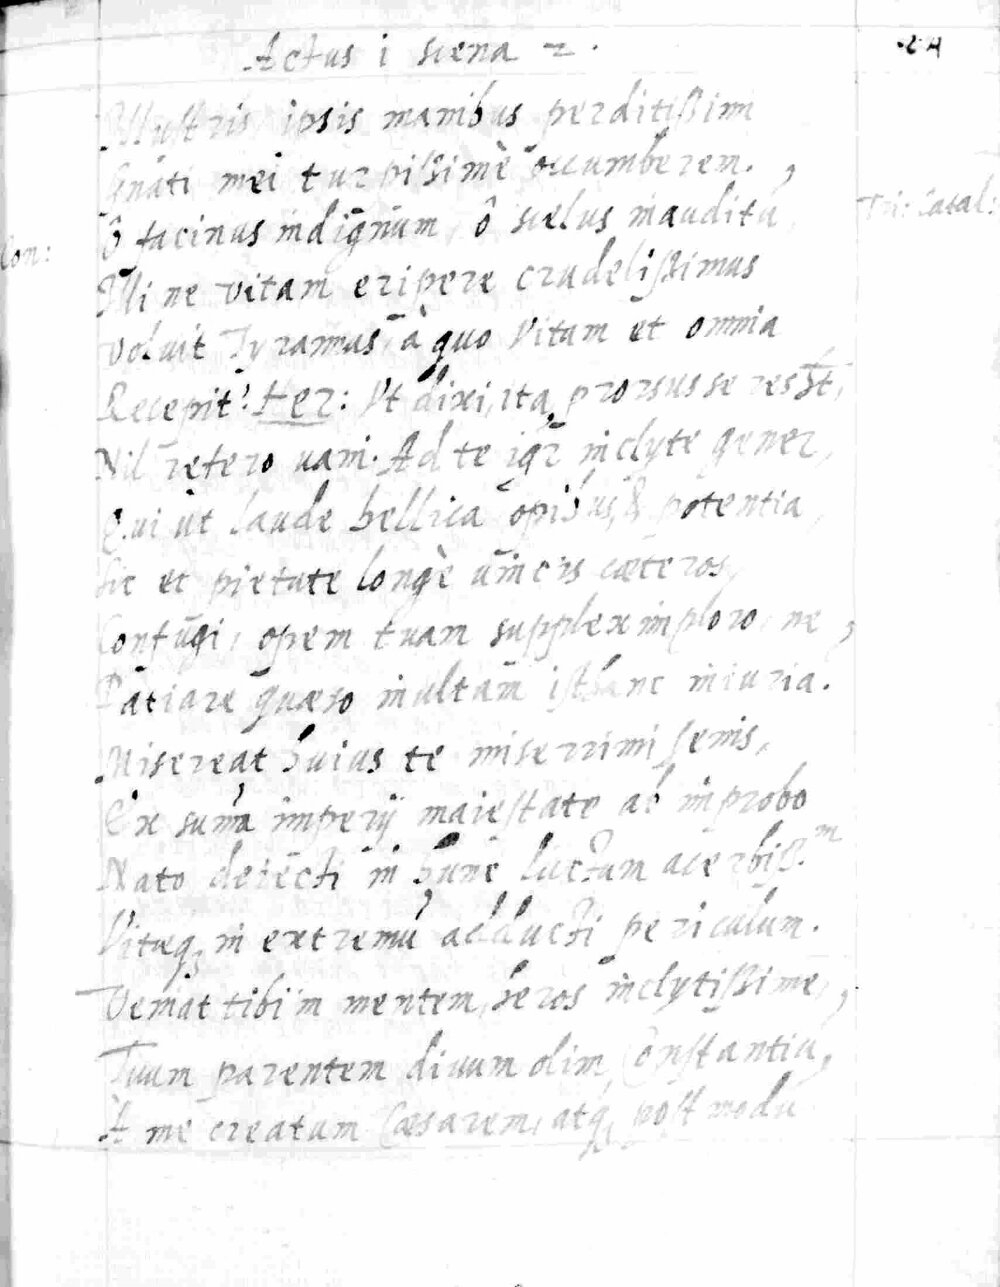 Actus i scena 2.
24
Illustris ipsis manibus perditißimi
Gnati mei turpißimè occumberem.
Con: ô facinus indignum, ô scelus inauditū Tri: Catal:
Illi ne vitam eripere crudelißimus
voluit Tyrannus, à quo vitam et omnia
Recepit? Her: Vt dixi, ita prorsus se res hēt,
Nil refero vani. Ad te igr̄ inclyte gener,
Qui ut laude bellica opibus, & potentia,
Sic et pietate longè vincis cæteros,
Confugi, opem tuam supplex imploro, ne
Patiare quæso inultam isthanc iniuria.
Misereat huius te miserrimi senis,
Ex summa imperij maiestate ab improbo
Nato deiecti in hunc luctum acerbiß.m
Vitæq, in extremū adducti periculum.
Veniat tibi in mentem, heros inclytißime,
Tuum parentem divum olim Constantiū,
A me creatum Cæsarem, atq, postmodū